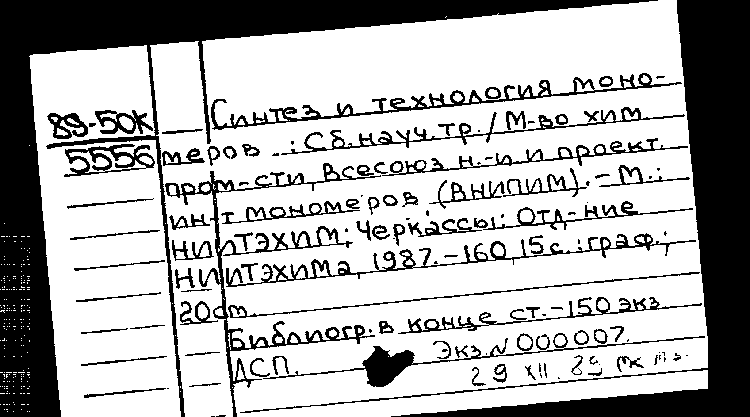 89-50К
5556
Синтез и технология моно-
меров : Сб. науч. тр. / М-во хим.
пром-сти, Всесоюз. н.-и. и проект.
ин-т мономеров (ВНИПИМ). - М.:
НИИТЭХИМ; Черкассы: Отд-ние
НИИТЭХИМа, 1987. - 160, 15 с. : граф.;
20 см.
Библиогр. в конце ст. - 150 экз.
ДСП. Экз. N 000007.
29 XII. 89